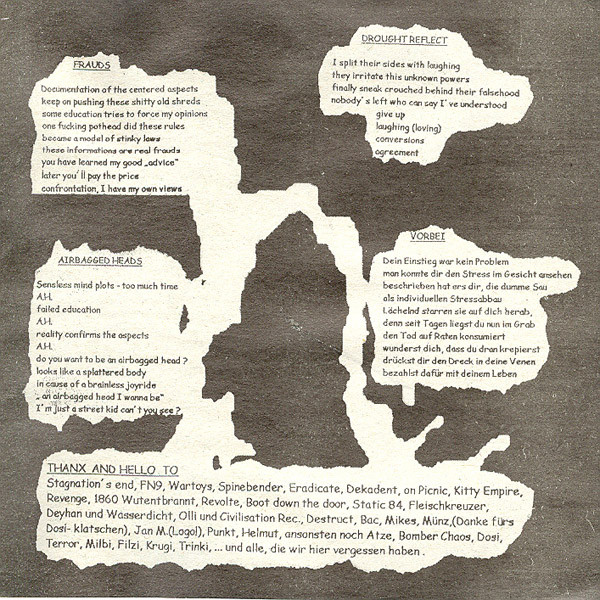 FRAUDS
Documentation of the centered aspects
keep on pushing these shitty old shreds
some education tries to force my opinions
one fucking pothead did these rules
became a model of stinky laws
these informations are real frauds
you have learned my good „advice"
later you´ll pay the price
confrontation, I have my own views
DROUGHT REFLECT
I split their sides with laughing
they irritate this unknown powers
finally sneak crouched behind their falsehood
nobody´s left who can say I´ve understood
give up
laughing (loving)
conversions
agreement
AIRBAGGED HEADS
Sensless mind plots - too much time
A.H.
failed education
A.H.
reality confirms the aspects
A.H.
do you want to be an airbagged head ?
looks like a splattered body
in cause of a brainless joyride
„ an airbagged head I wanna be"
I´m just a street kid can't you see ?
VORBEI
Dein Einstieg war kein Problem
man konnte dir den Stress im Gesicht ansehen
beschrieben hat ers dir, die dumme Sau
als individuellen Stressabbau
Lächelnd starren sie auf dich herab,
denn seit Tagen liegst du nun im Grab
den Tod auf Raten konsumiert
wunderst dich, dass du dran krepierst
drückst dir den Dreck in deine Venen
bezahlst dafür mit deinem Leben
THANX AND HELLO TO
Stagnation´s end, FN9, Wartoys, Spinebender, Eradicate, Dekadent, on Picnic, Kitty Empire,
Revenge, 1860 Wutentbrannt, Revolte, Boot down the door, Static 84, Fleischkreuzer,
Deyhan und Wasserdicht, Olli und Civilisation Rec., Destruct, Bac, Mikes, Münz,(Danke fürs
Dosi- klatschen), Jan M.(Logo!), Punkt, Helmut, ansonsten noch Atze, Bomber Chaos, Dosi,
Terror, Milbi, Filzi, Krugi, Trinki, ... und alle, die wir hier vergessen haben .